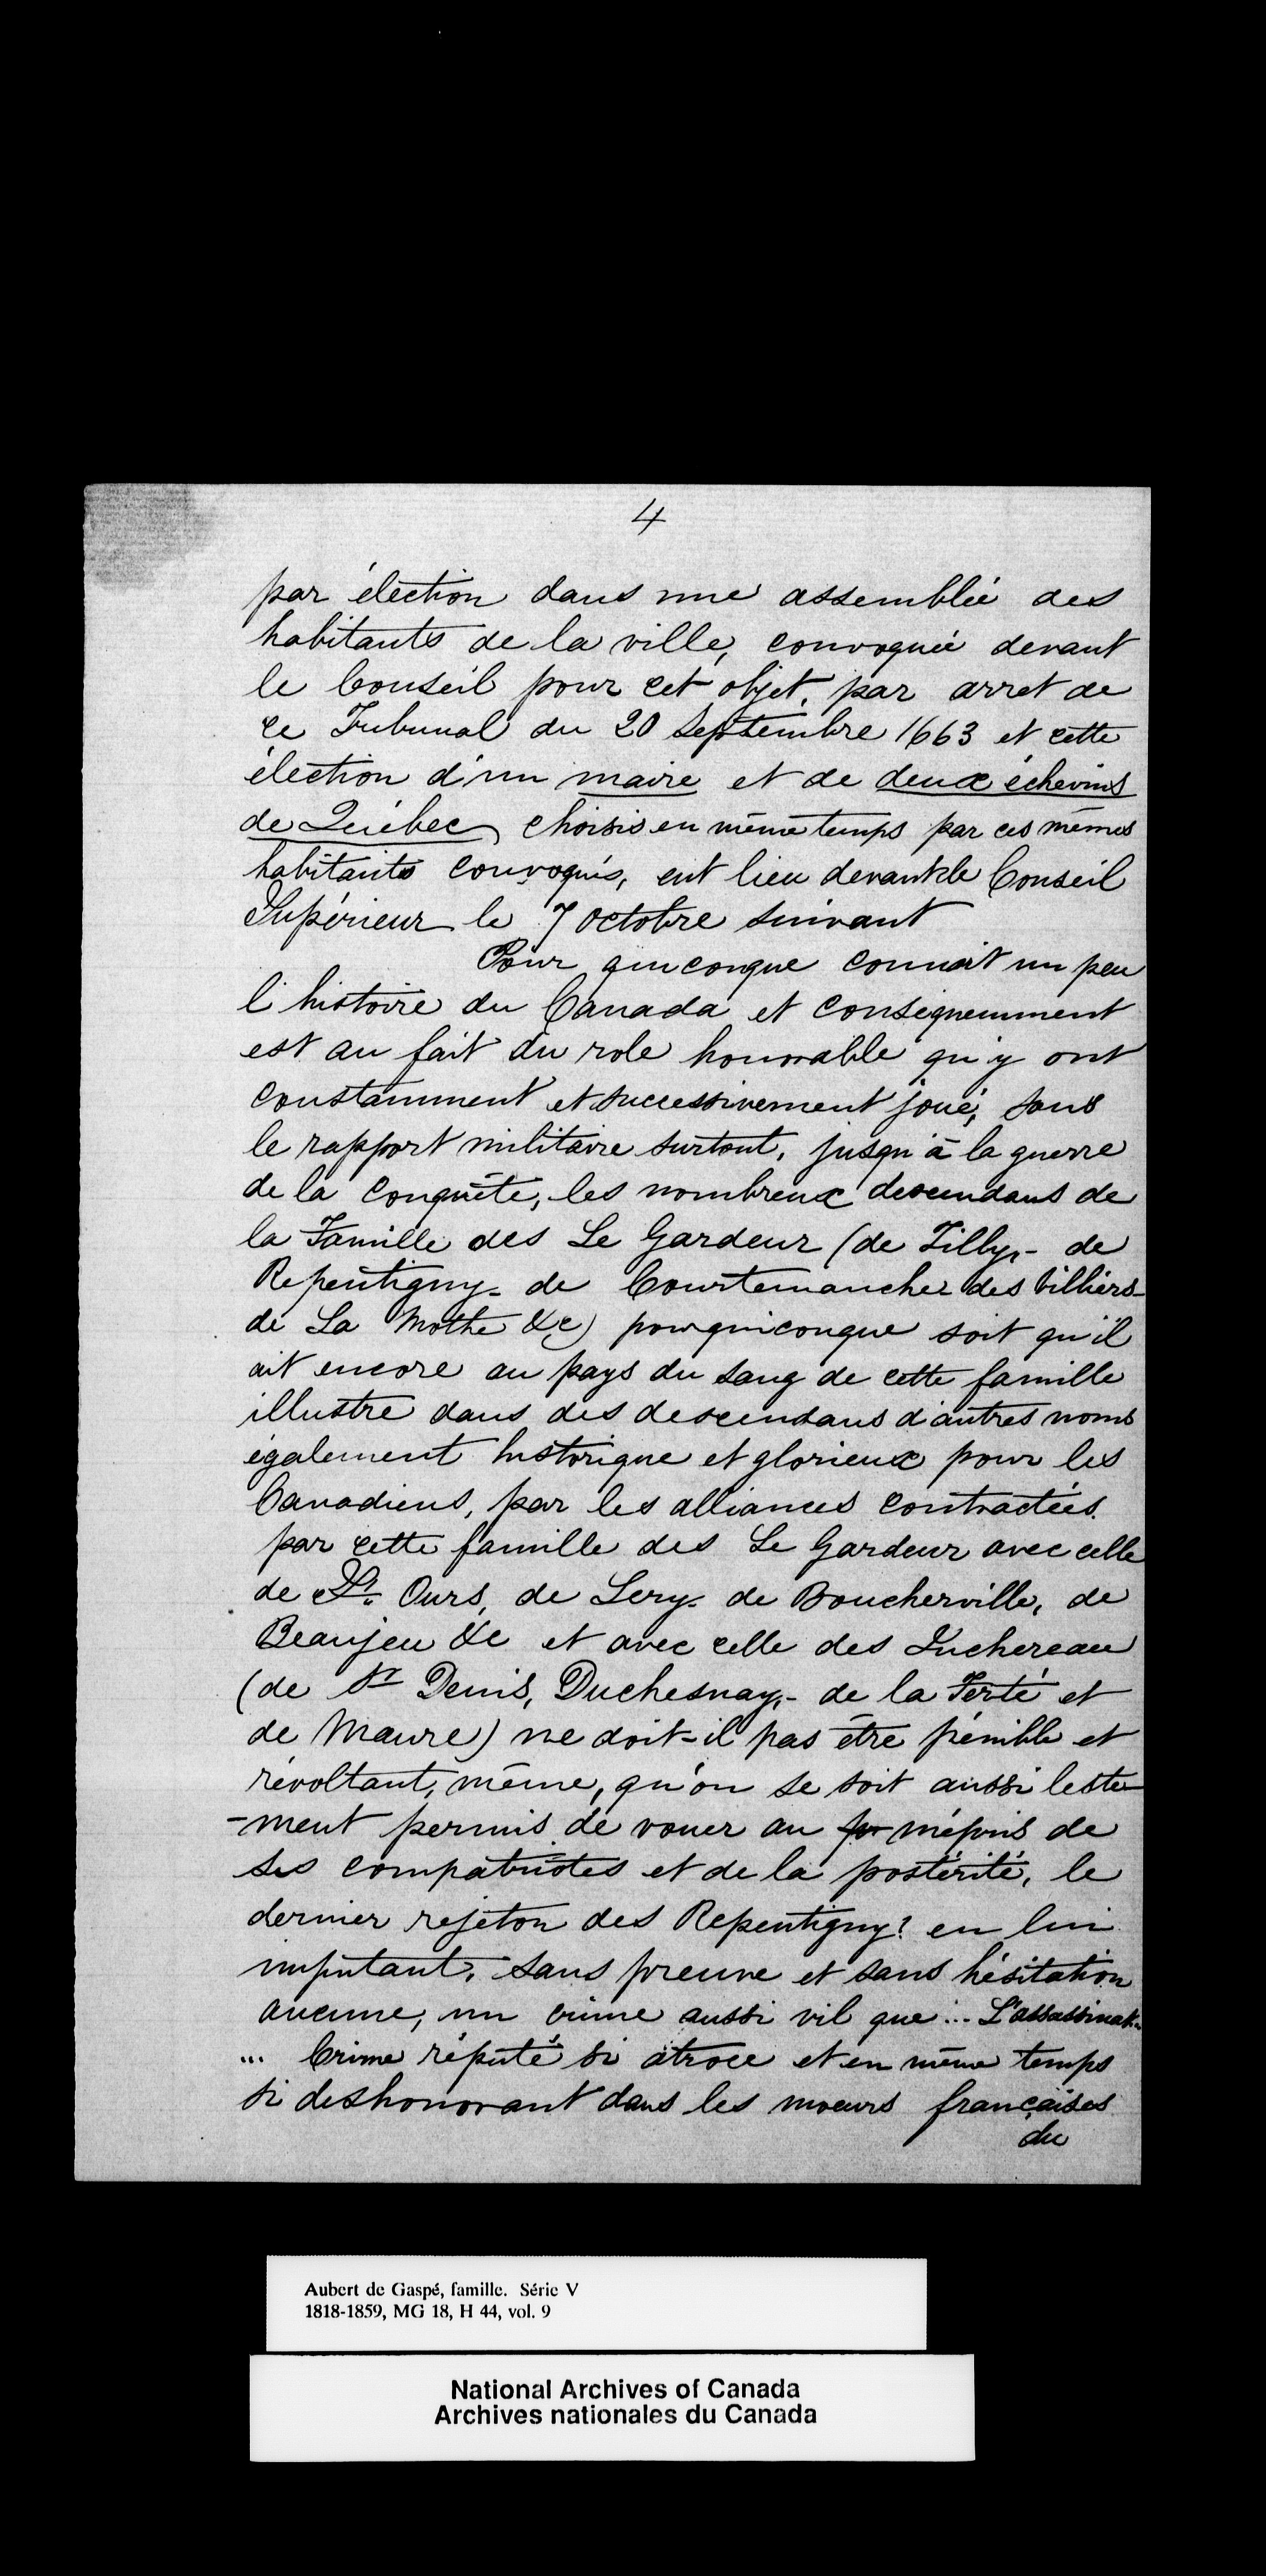 4
par élection dans une assemblée des
habitants de la ville, convoquée devant
le Conseil pour cet objet, par arret de
ce Tribunal du 20 Septembre 1663 et cette
élection d'un maire et de deux échevins
de Québec, choisis en même temps par ces mêmes
habitants convoqués, eut lieu devant le Conseil
Supérieur le 7 octobre suivant
Pour quiconque connait un peu
l'histoire du Canada et conséquemment
est au fait du role honorable qu'y ont
constamment et successivement joué, sous
le rapport militaire surtout, jusqu'à la guerre
de la Conquête, les nombreux descendans de
la Famille des Le Gardeur (de Tilly,- de
Repentigny- de Courtemanche des Villiers-
de La Mothe &c) pour quiconque soit qu'il
ait encore au pays du sang de cette famille
illustre dans des descendans d'autres noms
également historique et glorieux pour les
Canadiens, par les alliances contractées
par cette famille des Le Gardeur avec celle
de St. Ours, de Lery- de Boucherville, de
Beaujeu &c et avec celle des Juchereau
(de St Denis, Duchesnay,- de la Ferté et
de Maure) ne doit-il pas être pénible et
révoltant, même, qu'on se soit aussi leste-
-ment permis de vouer au mépris de
ses compatriotes et de la postérité, le
dernier rejeton des Repentigny? en lui
imputant, sans preuve et sans hésitation
aucune, un crime aussi vil que ... L'assassinat..
... Crime réputé si atroce et en même temps
si deshonorant dans les moeurs françaises
du
Aubert de Gaspé, famille. Série V
1818-1859, MG 18, H 44, vol. 9
National Archives of Canada
Archives nationales du Canada